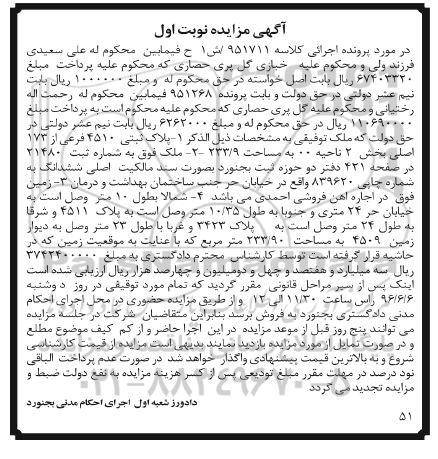 آگهی مزایده نوبت اول
در مورد پرونده اجرائی کلاسه ۹۵۱۷۱۱ /ش۱ ح فیمابین محکوم له علی سعیدی
فرزند ولی و محکوم علیه خبازی گل پری حصاری که محکوم علیه پرداخت مبلغ
۶۷۴۰۳۳۲۰ ریال بابت اصل خواسته در حق محکوم له و مبلغ ۱۰۰۰۰۰۰ ریال بابت
نیم عشر دولتی در حق دولت و بابت پرونده ۹۵۱۲۶۸ فیمابین محکوم له رحمت اله
رختیانی و محکوم علیه گل پری حصاری که محکوم علیه محکوم است به پرداخت مبلغ
۱۱۰۶۹۰۰۰۰ ریال در حق محکوم له و مبلغ ۶۲۶۲۰۰۰ ریال بابت نیم عشر دولتی در
حق دولت که ملک توقیفی به مشخصات ذیل الذکر ۱-پلاک ثبتی ۴۵۱۰ فرعی از ۱۷۳
اصلی بخش ۲ ناحیه ۰۰ به مساحت ۲۳۳/۹ -۲- ملک فوق به شماره ثبت ۲۱۴۸۰
در صفحه ۴۲۱ دفتر دو حوزه ثبت بجنورد بصورت سند مالکیت اصلی ششدانگ به
شماره چاپی ۸۳۹۶۲۰ واقع در خیابان حر جنب ساختمان بهداشت و درمان ۳- زمین
فوق در اجاره اهن فروشی احمدی می باشد ۴- شمالا بطول ۱۰ متر وصل است به
خیابان حر ۲۴ متری و جنوبا به طول ۱۰/۳۵ متر وصل است به پلاک ۴۵۱۱ و شرقا
به طول ۲۴ متر وصل است به پلاک ۳۴۲۳ و غربا با طول ۲۳ متر وصل به دیوار
زمین ۴۵۰۹ به مساحت ۲۳۳/۹۰ متر مربع که با عنایت به موقعیت زمین که در
حاشیه قرار گرفته است توسط کارشناس محترم دادگستری به مبلغ ۳۷۴۲۴۰۰۰۰۰
ریال سه میلیارد و هفتصد و چهل و دومیلیون و چهارصد هزار ریال ارزیابی شده است
اینک پس از سیر مراحل قانونی مقرر گردید که تمام مورد توقیفی در روز دوشنبه
۹۶/۶/۶ راس ساعت ۱۱/۳۰ الی ۱۲ و از طریق مزایده حضوری در محل اجرای احکام
مدنی دادگستری بجنورد به فروش برسد بنابراین متقاضیان شرکت در جلسه مزایده
می توانند پنج روز قبل از موعد مزایده در این اجرا حاضر و از کم کیف موضوع مطلع
و در صورت تمایل از مورد مزایده بازدید نمایند بدیهی است مزایده از قیمت کارشناسی
شروع و به بالاترین قیمت پیشنهادی واگذار خواهد شد در صورت عدم پرداخت الباقی
نود درصد در مهلت مقرر مبلغ تودیعی پس از کسر هزینه مزایده به نفع دولت ضبط و
مزایده تجدید می گردد
دادورز شعبه اول اجرای احکام مدنی بجنورد
۵۱